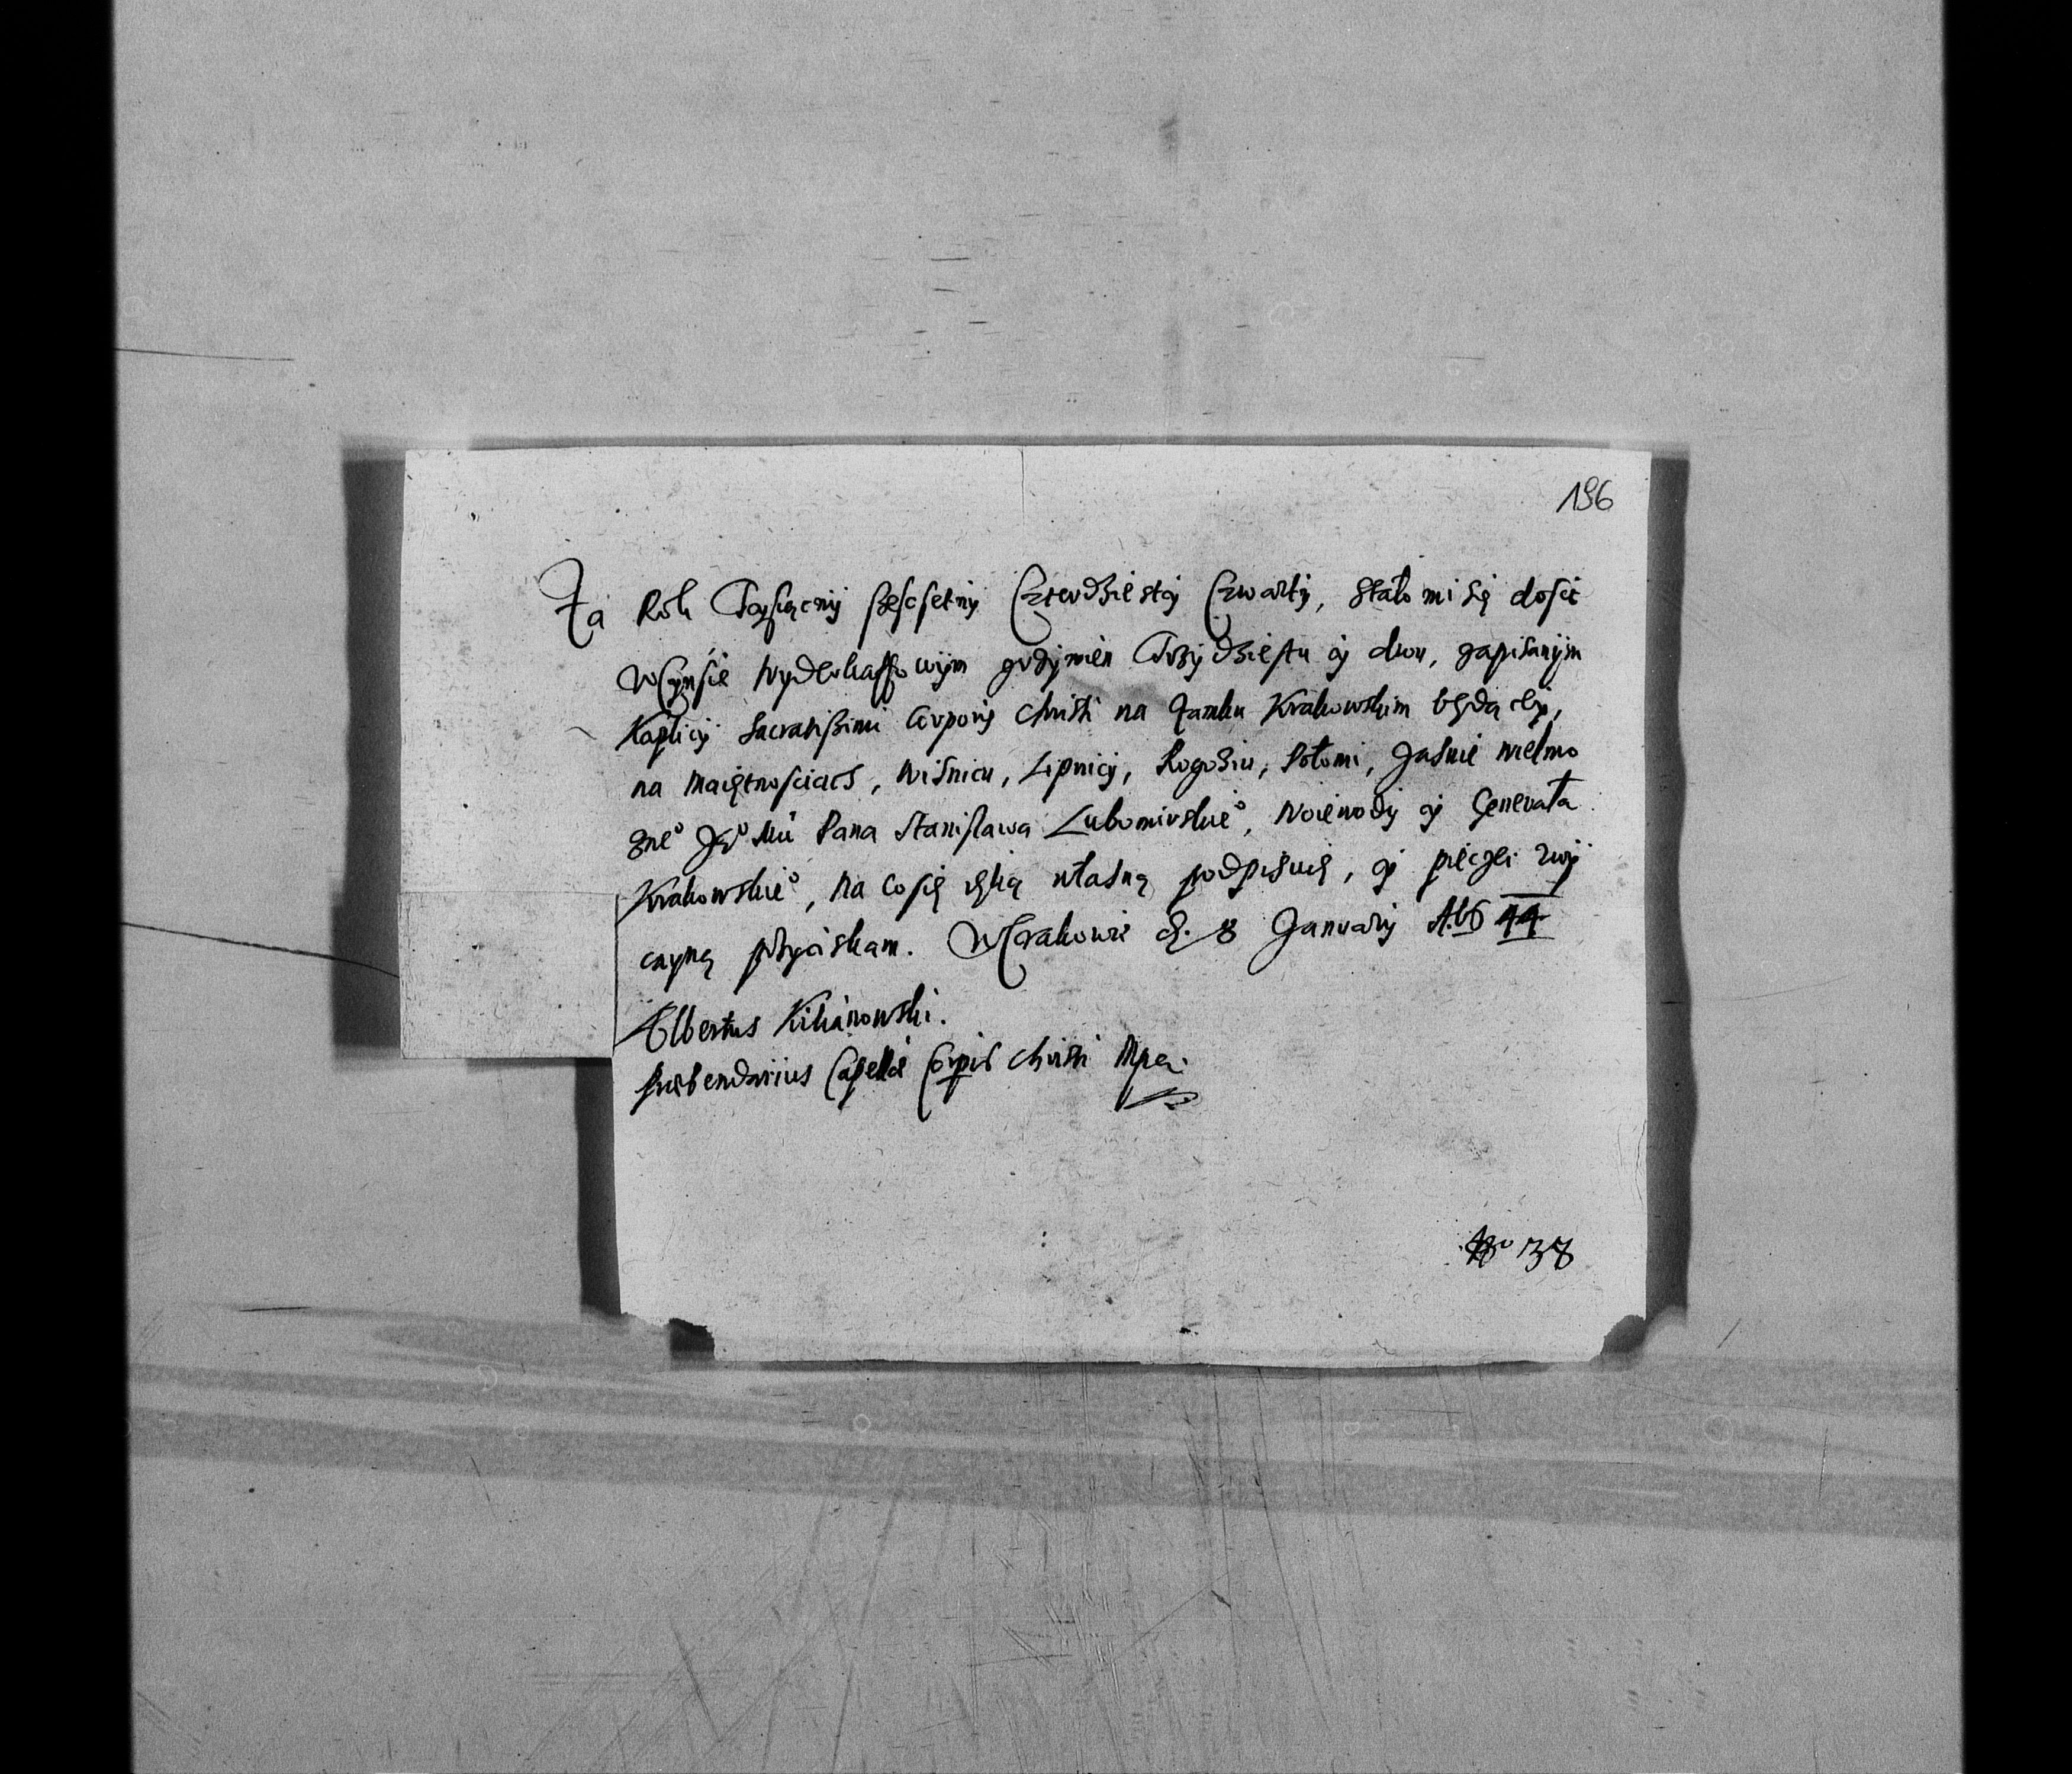 196
Za Rok Tysiącny szescsetny Czterdziesty Czwarty, stało mi się dosić
w Czynsie Wyderkaffowym grzywien Trzydziestu y dwu, zapisanym
Kaplicy Sacratissimi Corporis Christi na Zamku Krakowskim będącey,
na Maiętnosciach, Wisnicu, Lipnicy, Rogoziu, Połomi, Jasnie Wielmo
zne° Je° Mci Pana Stanisława Lubomirskie°, Woiewody y Generała
Krakowskie°, na co się ręką własną podpisuię, y pięczęć zwy
cayną przyciskam. W Krakowie d. 8 January A. 1644
Albertus Kilianowski.
Præbendarius Capellæ Corpis Christi Mpa.
N° 38